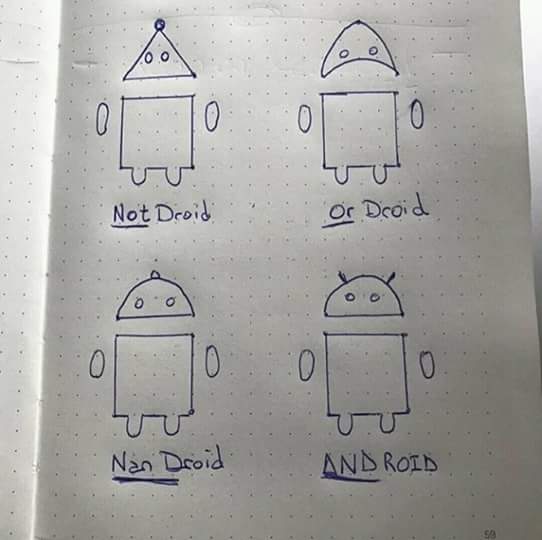 Not Droid
Or Droid
Nan Droid
ANDROID
59